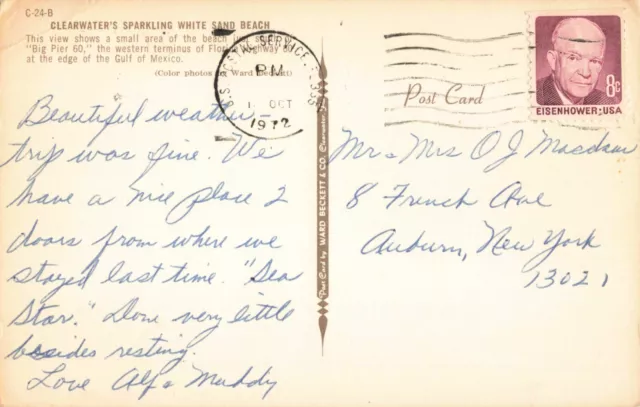 C-24-B
CLEARWATER'S SPARKLING WHITE SAND BEACH
This view shows a small area of the beach just
"Big Pier 60," the western terminus of Florida Highway 60
at the edge of the Gulf of Mexico.
(Color photos by Ward Beckett)
Beautiful weather -
trip was fine. We
have a nice place 2
doors from where we
stayed last time. "Sea
Star." Done very little
besides resting.
Love Alf & Muddy
U.S. POSTAL SERVICE
PM
OCT
1972
Post Card by WARD BECKETT & CO. Clearwater,
Post Card
8c
EISENHOWER·USA
Mr & Mrs O J
8 French Ave
Auburn, New York
13021